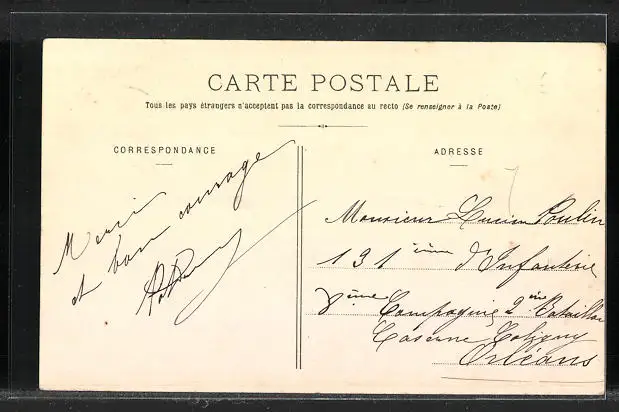 CARTE POSTALE
Tous les pays étrangers n'acceptent pas la correspondance au recto (Se renseigner à la Poste)
CORRESPONDANCE
Merci
et bon courage
ADRESSE
Monsieur Lucien Poulin
131ième d'Infanterie
8ème Compagnie 2me Bataillon
Caserne Coligny
Orléans